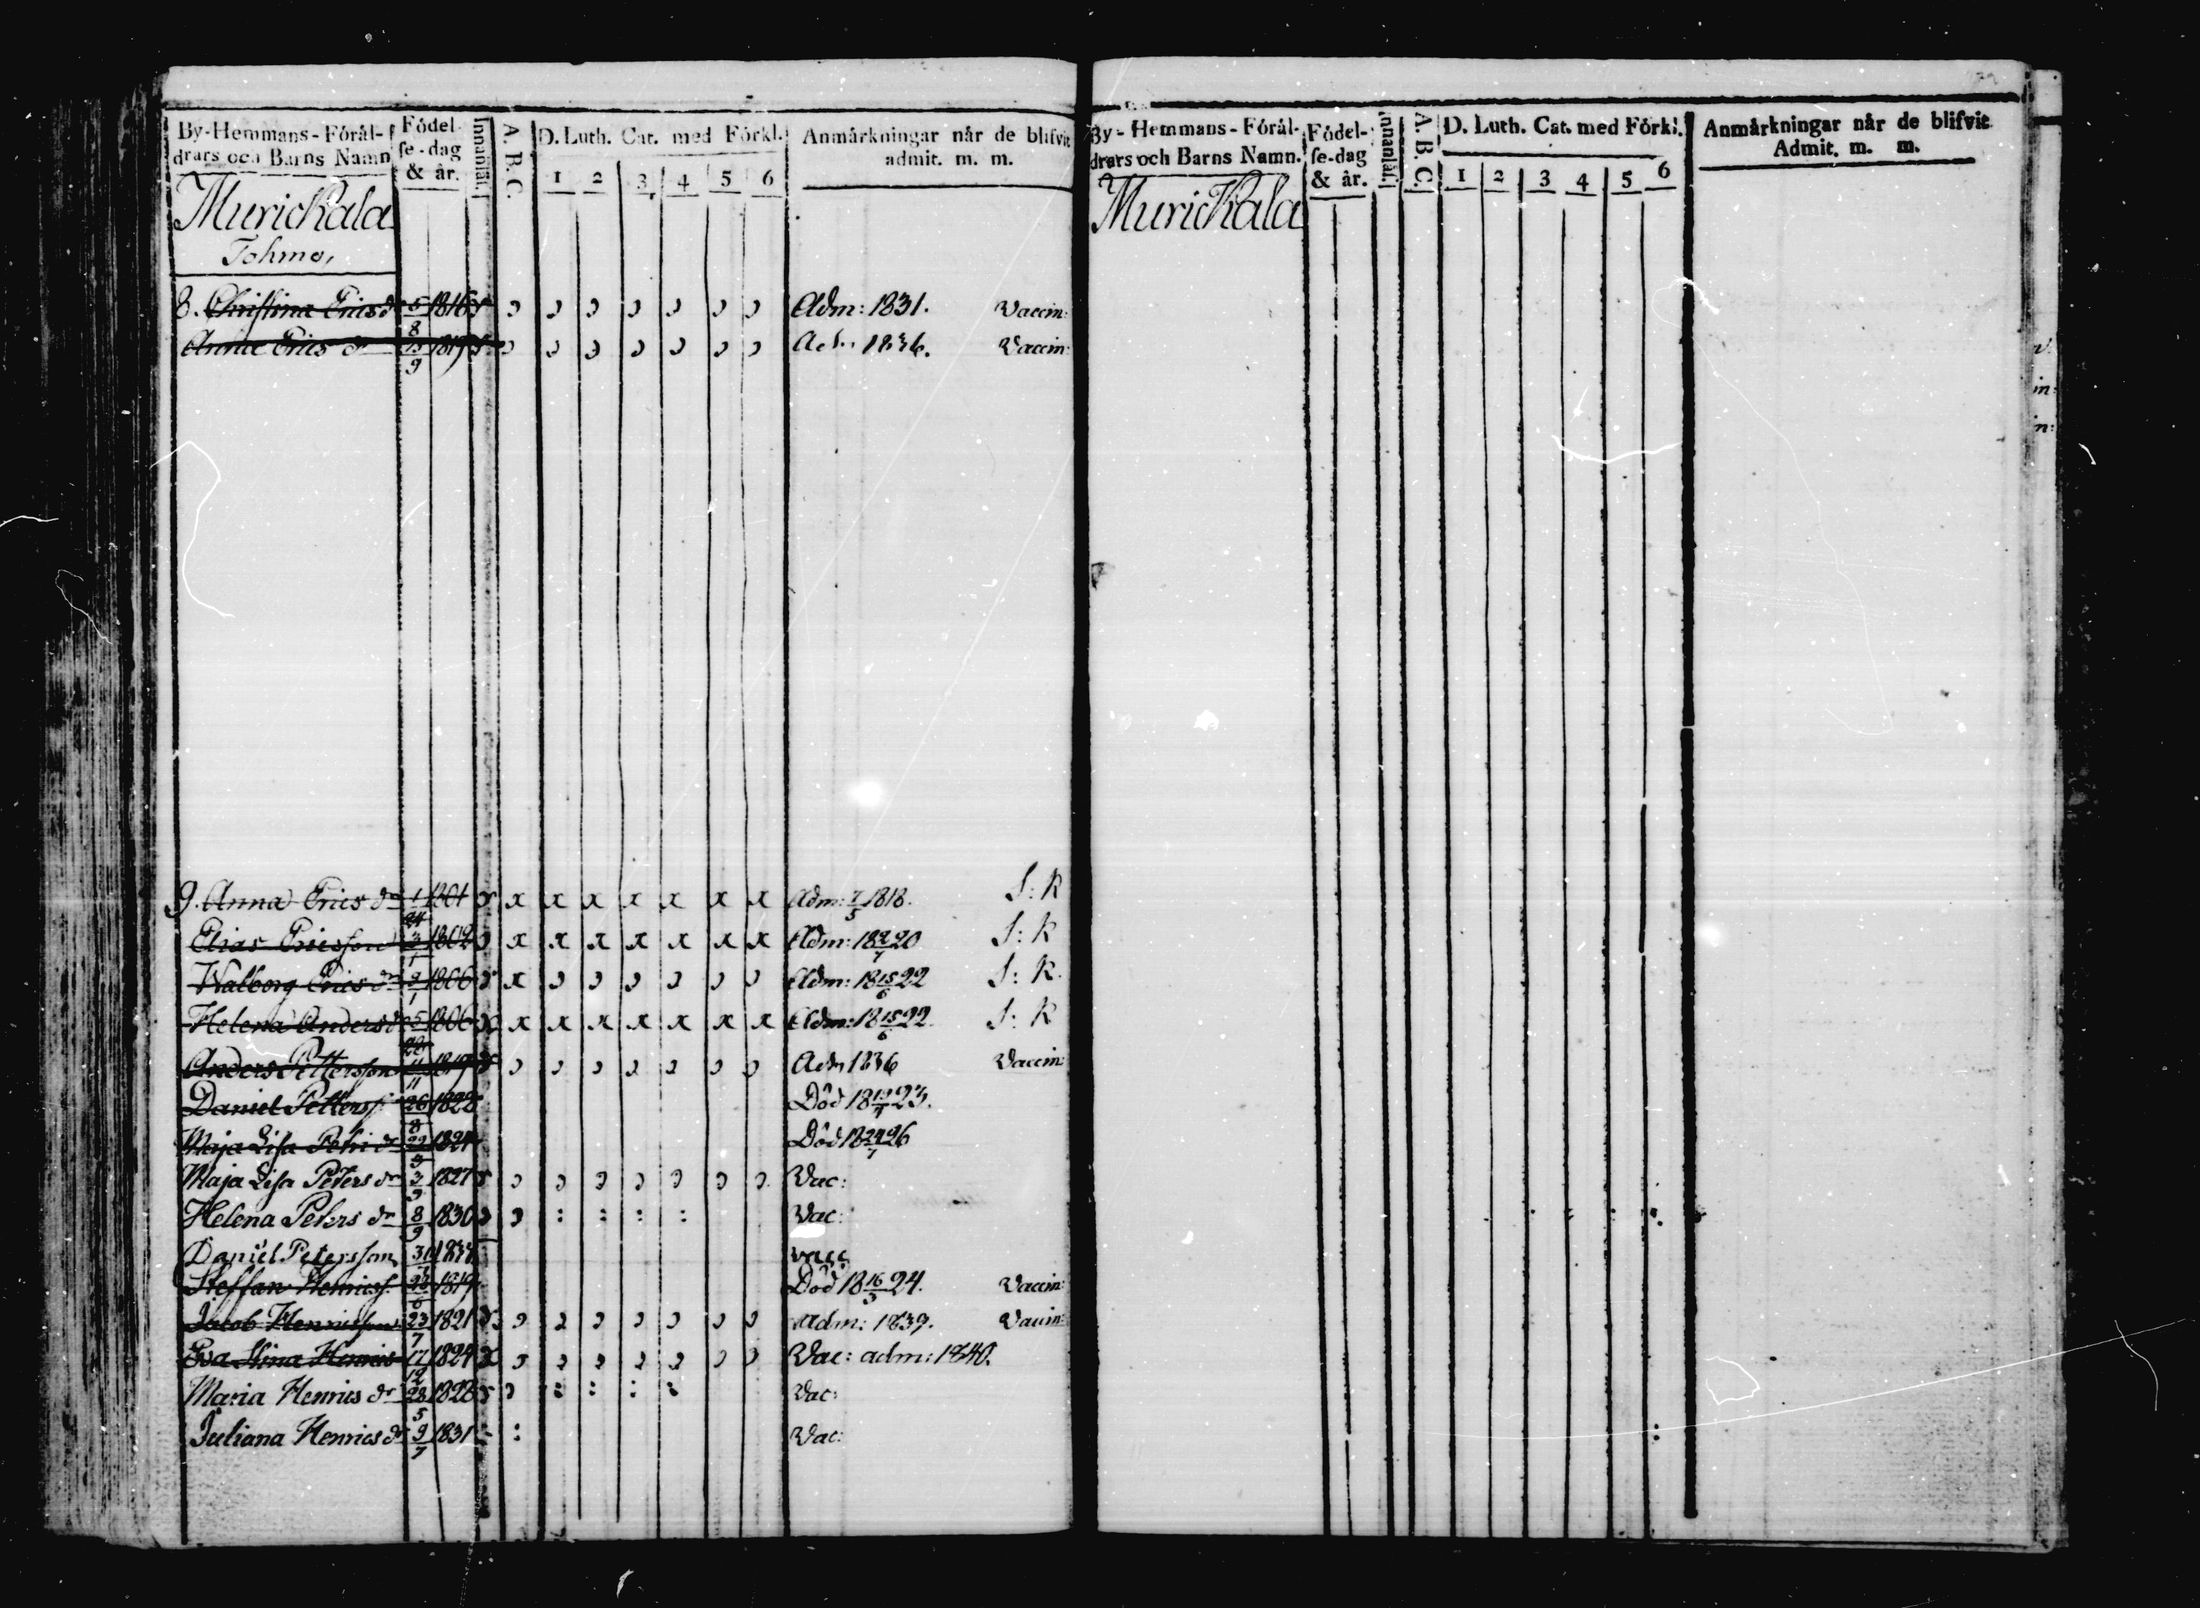 By-Hemmans-Föräl- Födel- Innanläs. A. B. C. D. Luth. Cat. med Förkl. Anmärkningar når de blifvit
drars och Barns Namn se-dag & år. 1 2 3 4 5 6 admit. m. m.
Murickala
Tohmo,
8. Christina Erics dr 5/8 1816 Adm: 1831. Vaccin:
Annae Erics dr 15/9 1819 Ad. 1836. Vaccin:
9. Anna Erics dr 1/24 1801 x x x x x x x Adm: 7/5 1818. S: R
Elias Ericsson 3/1 1802 x x x x x x x Adm: 18 2/7 20 S: R
Walborg Erics dr 9/1 1806 x Adm: 18 15/6 22 S: R.
Helena Anders dr 5/ 1806 x x x x x x x Adm: 18 15/6 22. S: R
Anders Pettersson 11/11 1819 Adm 1836 Vaccin:
Daniel Petterss. 26/8 1822 Död 18 19/7 23.
Maja Lisa Petri dr 22/3 1824 Död 18 24/7 26
Maja Lisa Peters dr 3/9 1827 Vac:
Helena Peters dr 8/9 1830 : : : : Vac:
Daniel Petersson 31/ vacc
Steffan Henricss. 1819 Död 18 16/3 24. Vaccin:
Jacob Henricsson 23/7 1821 adm: 1839. Vaccin:
Eva Stina Henrics 17/12 1824 Vac: adm: 1840.
Maria Henrics dr 28/5 1828 : : : : Vac:
Juliana Henrics dr 9/7 1831 : Vac:
By-Hemmans-Föräl- Födel- Innanläs. A. B. C. D. Luth. Cat. med Förkl. Anmärkningar når de blifvit
drars och Barns Namn. se-dag & år. 1 2 3 4 5 6 Admit. m. m.
Murickala